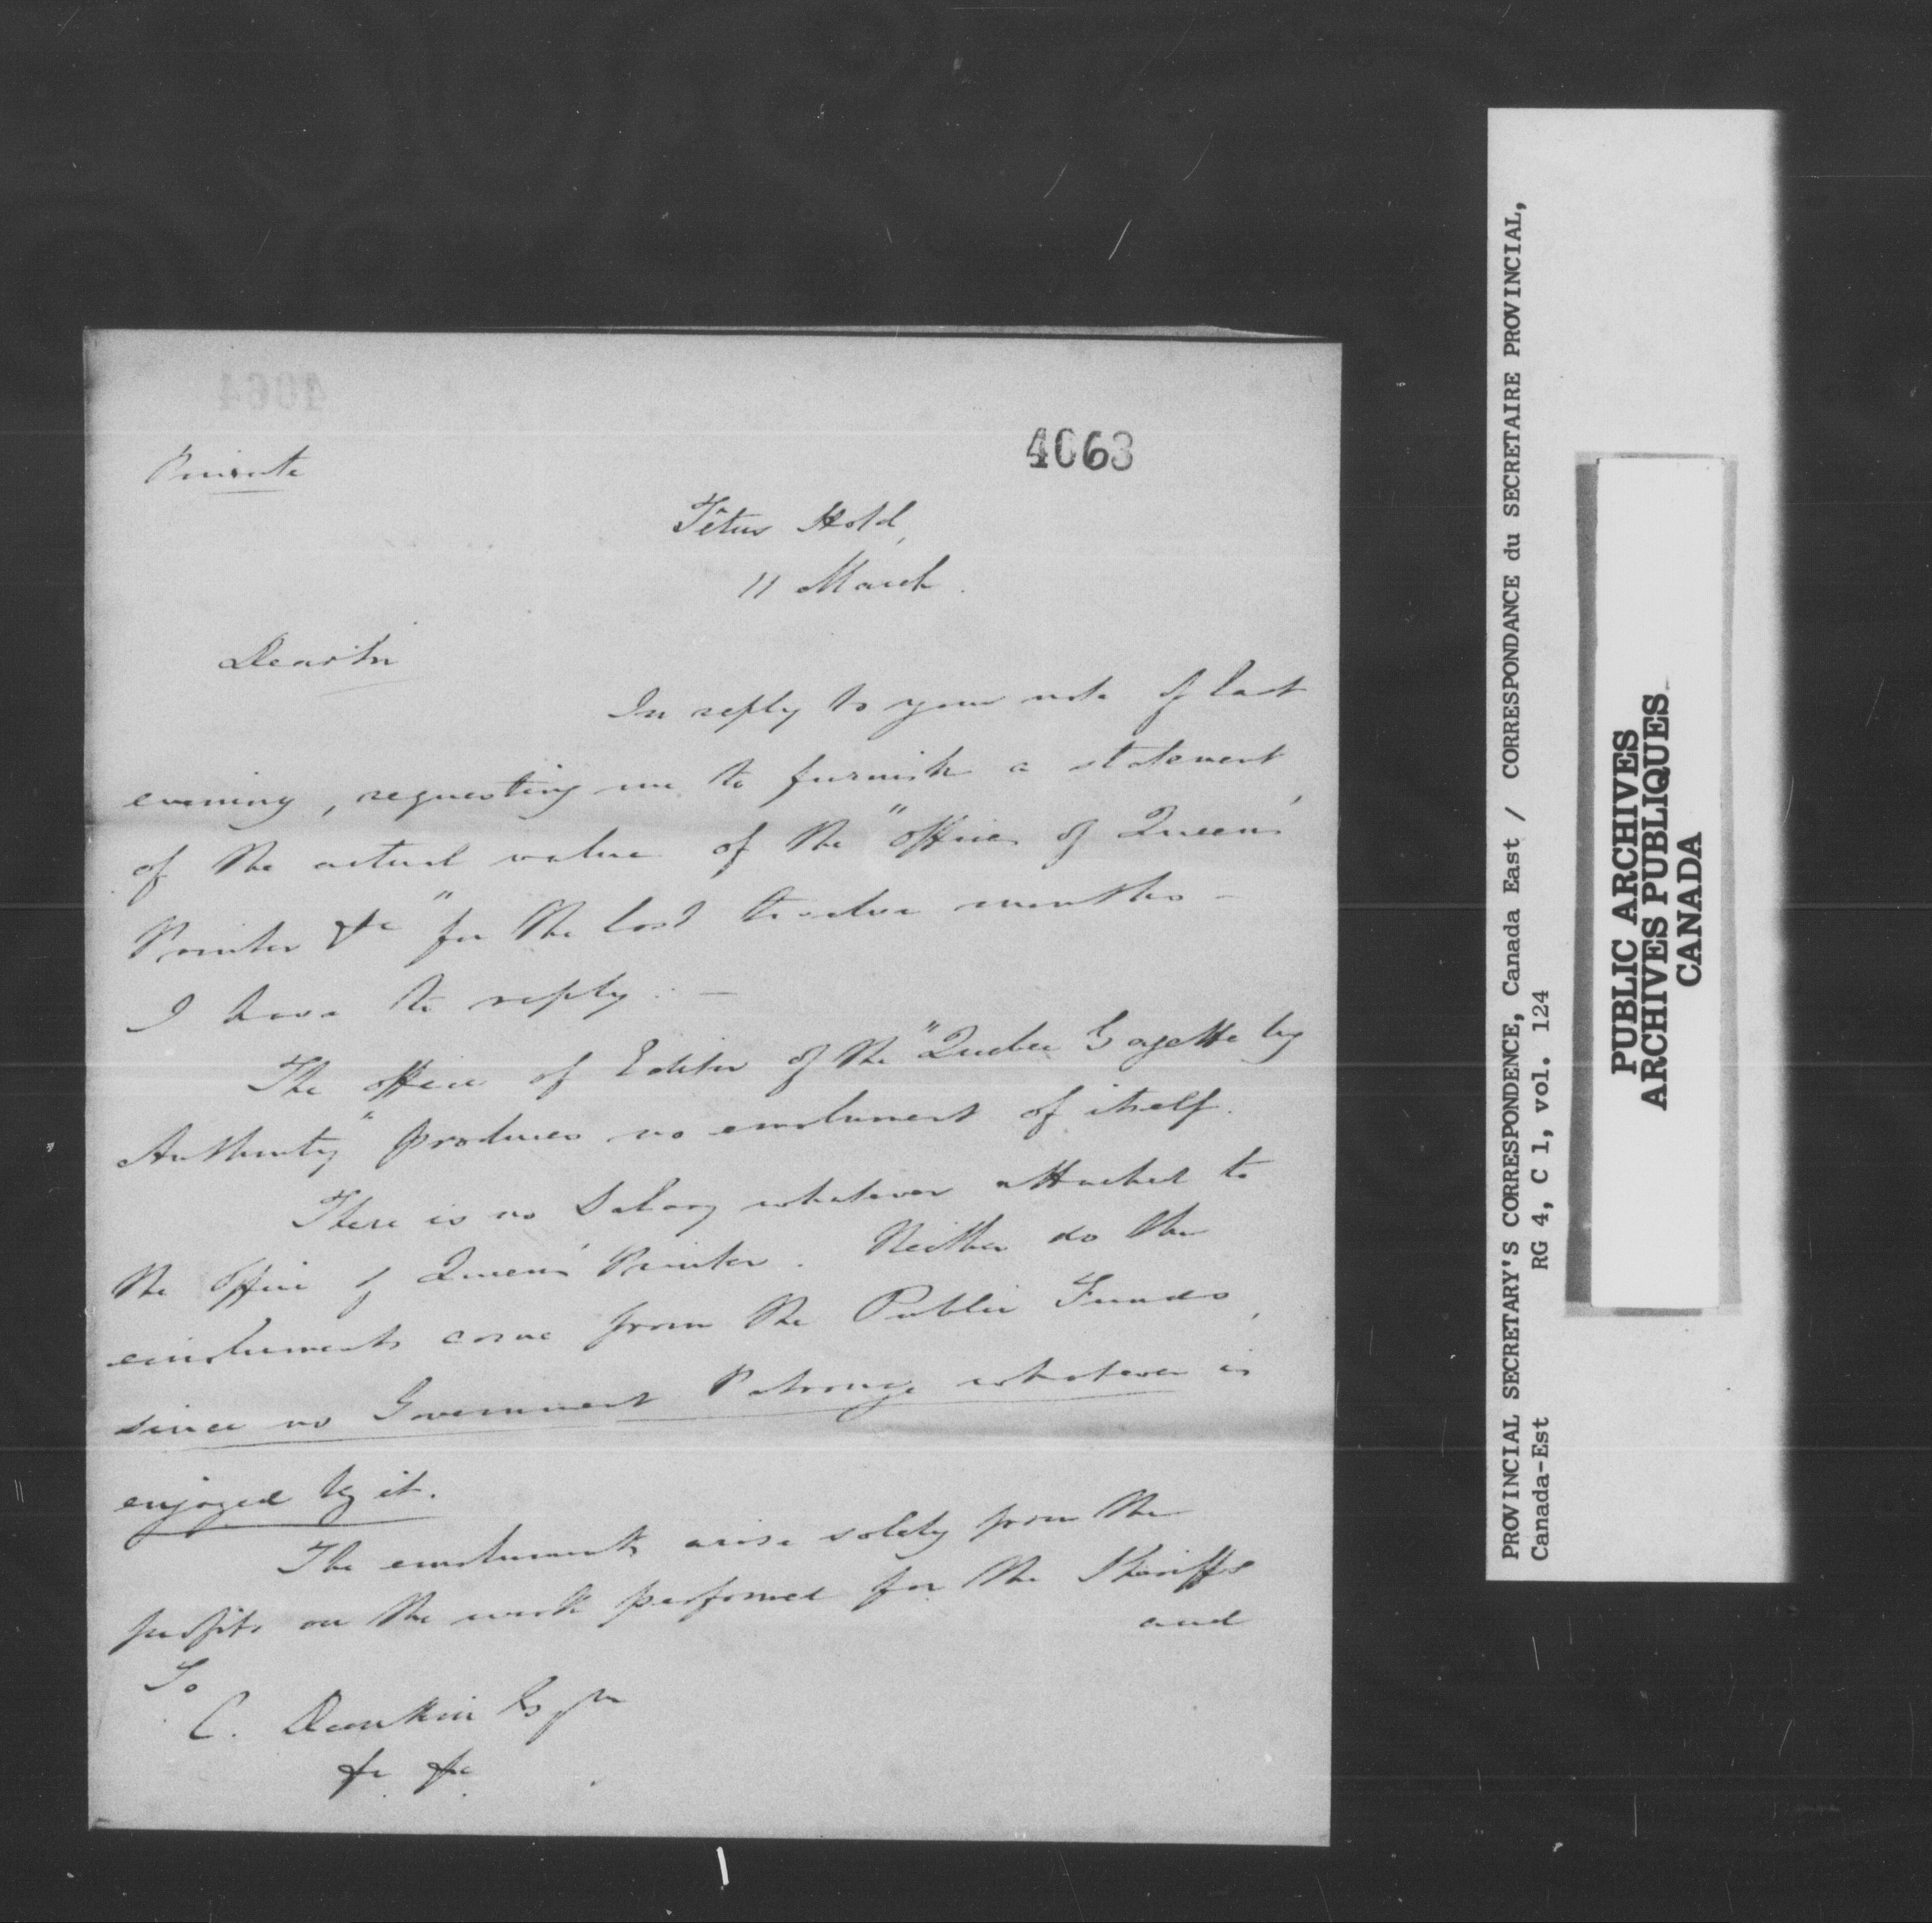 4064
4063
Private
Têtus Hotel,
11 March.
Dear Sir
In reply to your note of last
evening, requesting me to furnish a statement
of the actual value of the "Office of Queen's
Printer &c" for the last twelve months –
I have to reply: –
The office of Editor of the "Quebec Gazette by
Authority" produces no emolument of itself.
There is no Salary whatever attached to
the Office of Queen's Printer. Neither do the
emoluments come from the Public Funds,
since no Government Patronage whatever is
enjoyed by it.
The emoluments arise solely from the
profits on the work performed for the Sheriffs
and
To
C. Dunkin Esqre
&c. &c.
PROVINCIAL SECRETARY'S CORRESPONDENCE, Canada East / CORRESPONDANCE du SECRETAIRE PROVINCIAL,
Canada-Est RG 4, C 1, vol. 124
PUBLIC ARCHIVES
ARCHIVES PUBLIQUES
CANADA